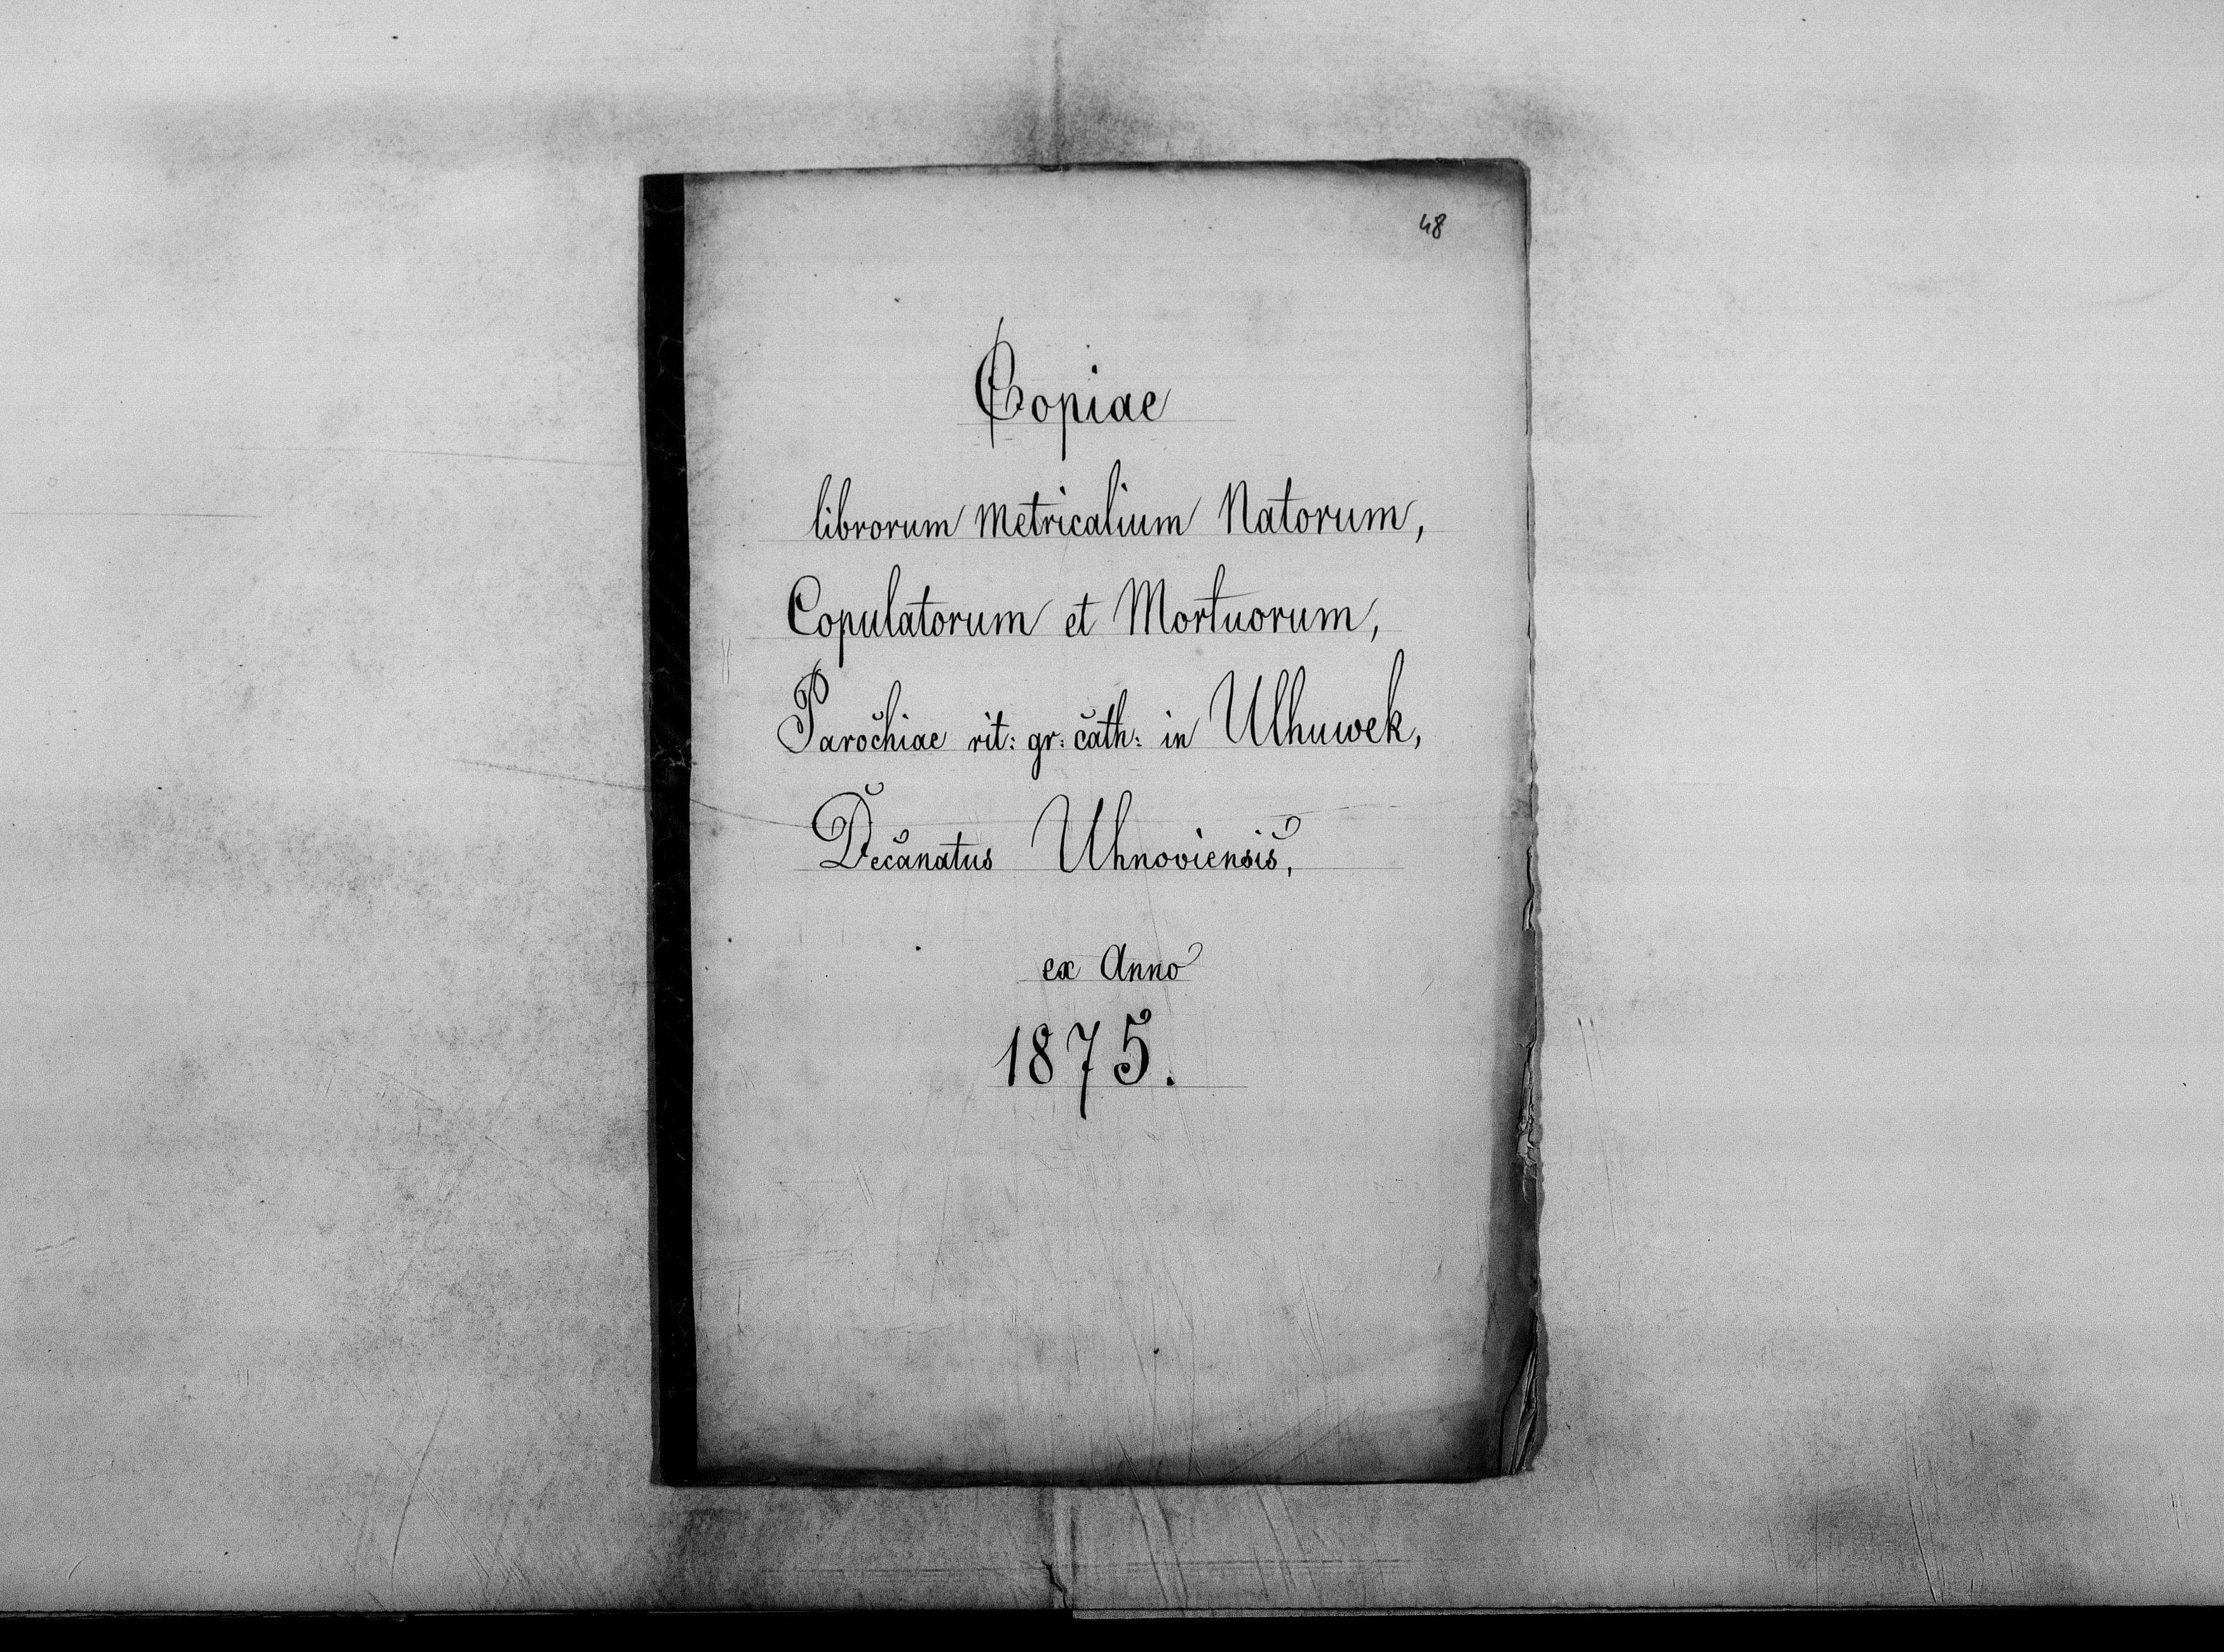 48
Copiae
librorum Metricalium Natorum,
Copulatorum et Mortuorum,
Parochiae rit: gr: cath: in Ulhuwek,
Decanatus Uhnoviensis,
ex Anno
1875.